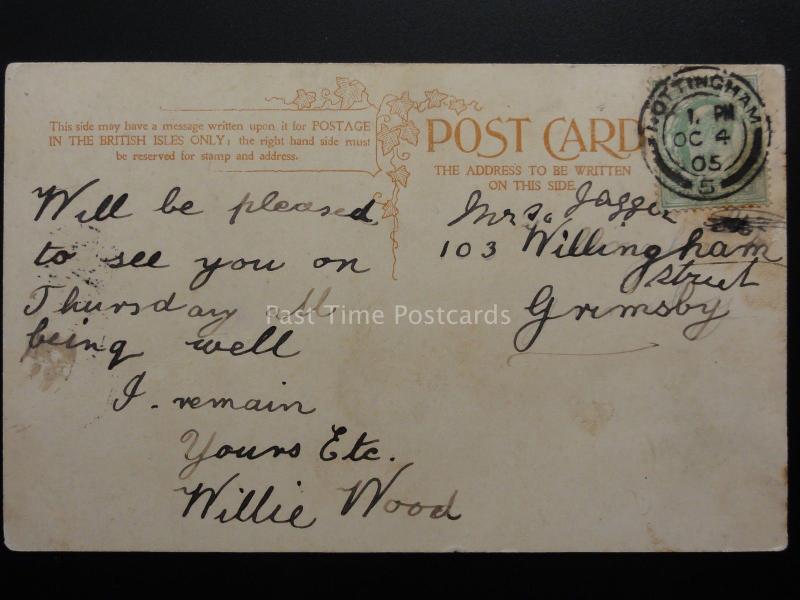 This side may have a message written upon it for POSTAGE
IN THE BRITISH ISLES ONLY; the right hand side must
be reserved for stamp and address.
POST CARD
THE ADDRESS TO BE WRITTEN
ON THIS SIDE.
NOTTINGHAM
1. PM
OC 4
05
5
Will be pleased
to see you on
Thursday all
being well
I. remain
Yours Etc.
Willie Wood
Mrs. Jagger
103 Willingham
Street
Grimsby
Past Time Postcards